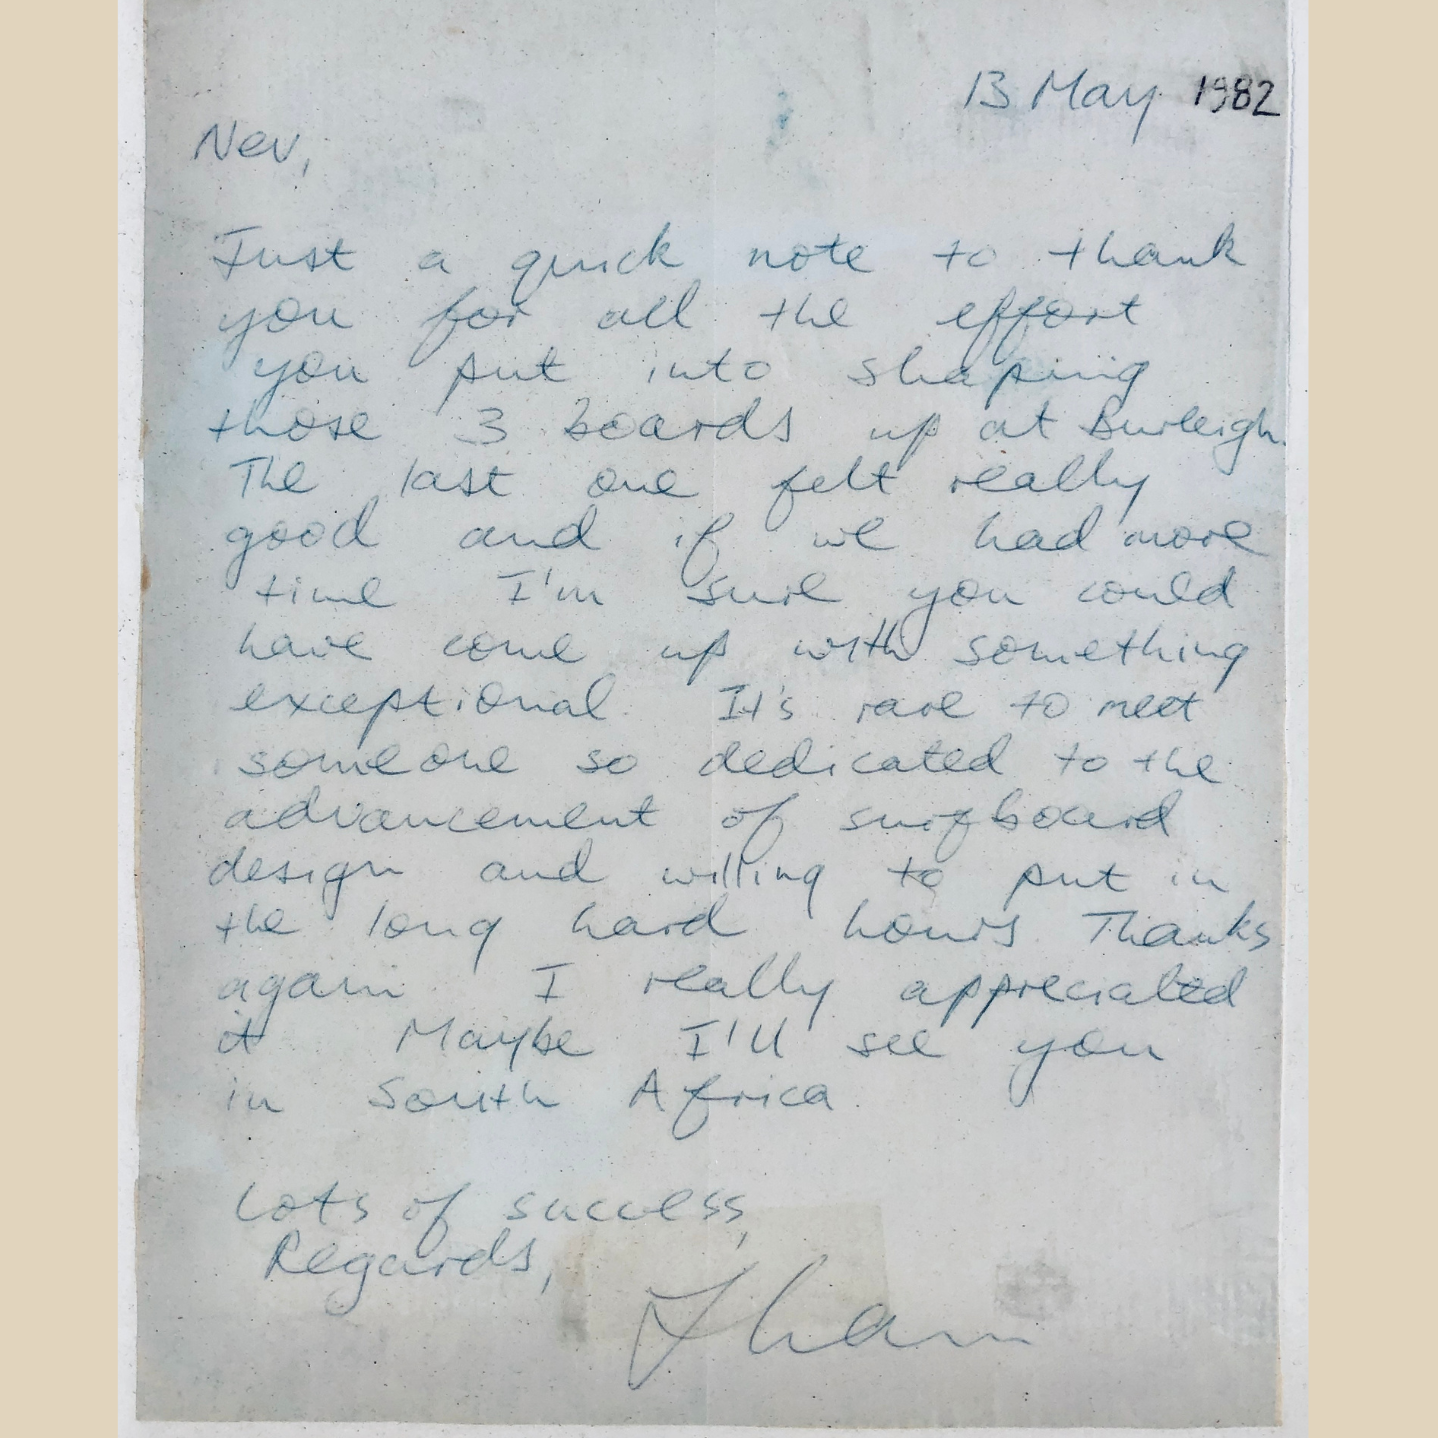 13 May 1982
Nev,
Just a quick note to thank
you for all the effort
you put into shaping
those 3 boards up at Burleigh.
The last one felt really
good and if we had more
time I'm sure you could
have come up with something
exceptional. It's rare to meet
someone so dedicated to the
advancement of surfboard
design and willing to put in
the long hard hours. Thanks
again. I really appreciated
it. Maybe I'll see you
in South Africa.
Lots of success,
Regards,